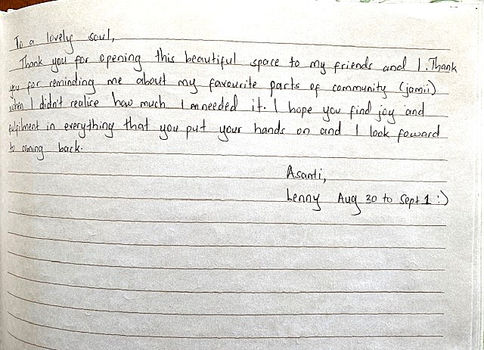 To a lovely soul,
Thank you for opening this beautiful space to my friends and I. Thank
you for reminding me about my favourite parts of community (jamii)
when I didn't realise how much I mneeded it. I hope you find joy and
fulfilment in everything that you put your hands on and I look foward
to coming back.
Asanti,
Lenny Aug 30 to Sept 1 :)